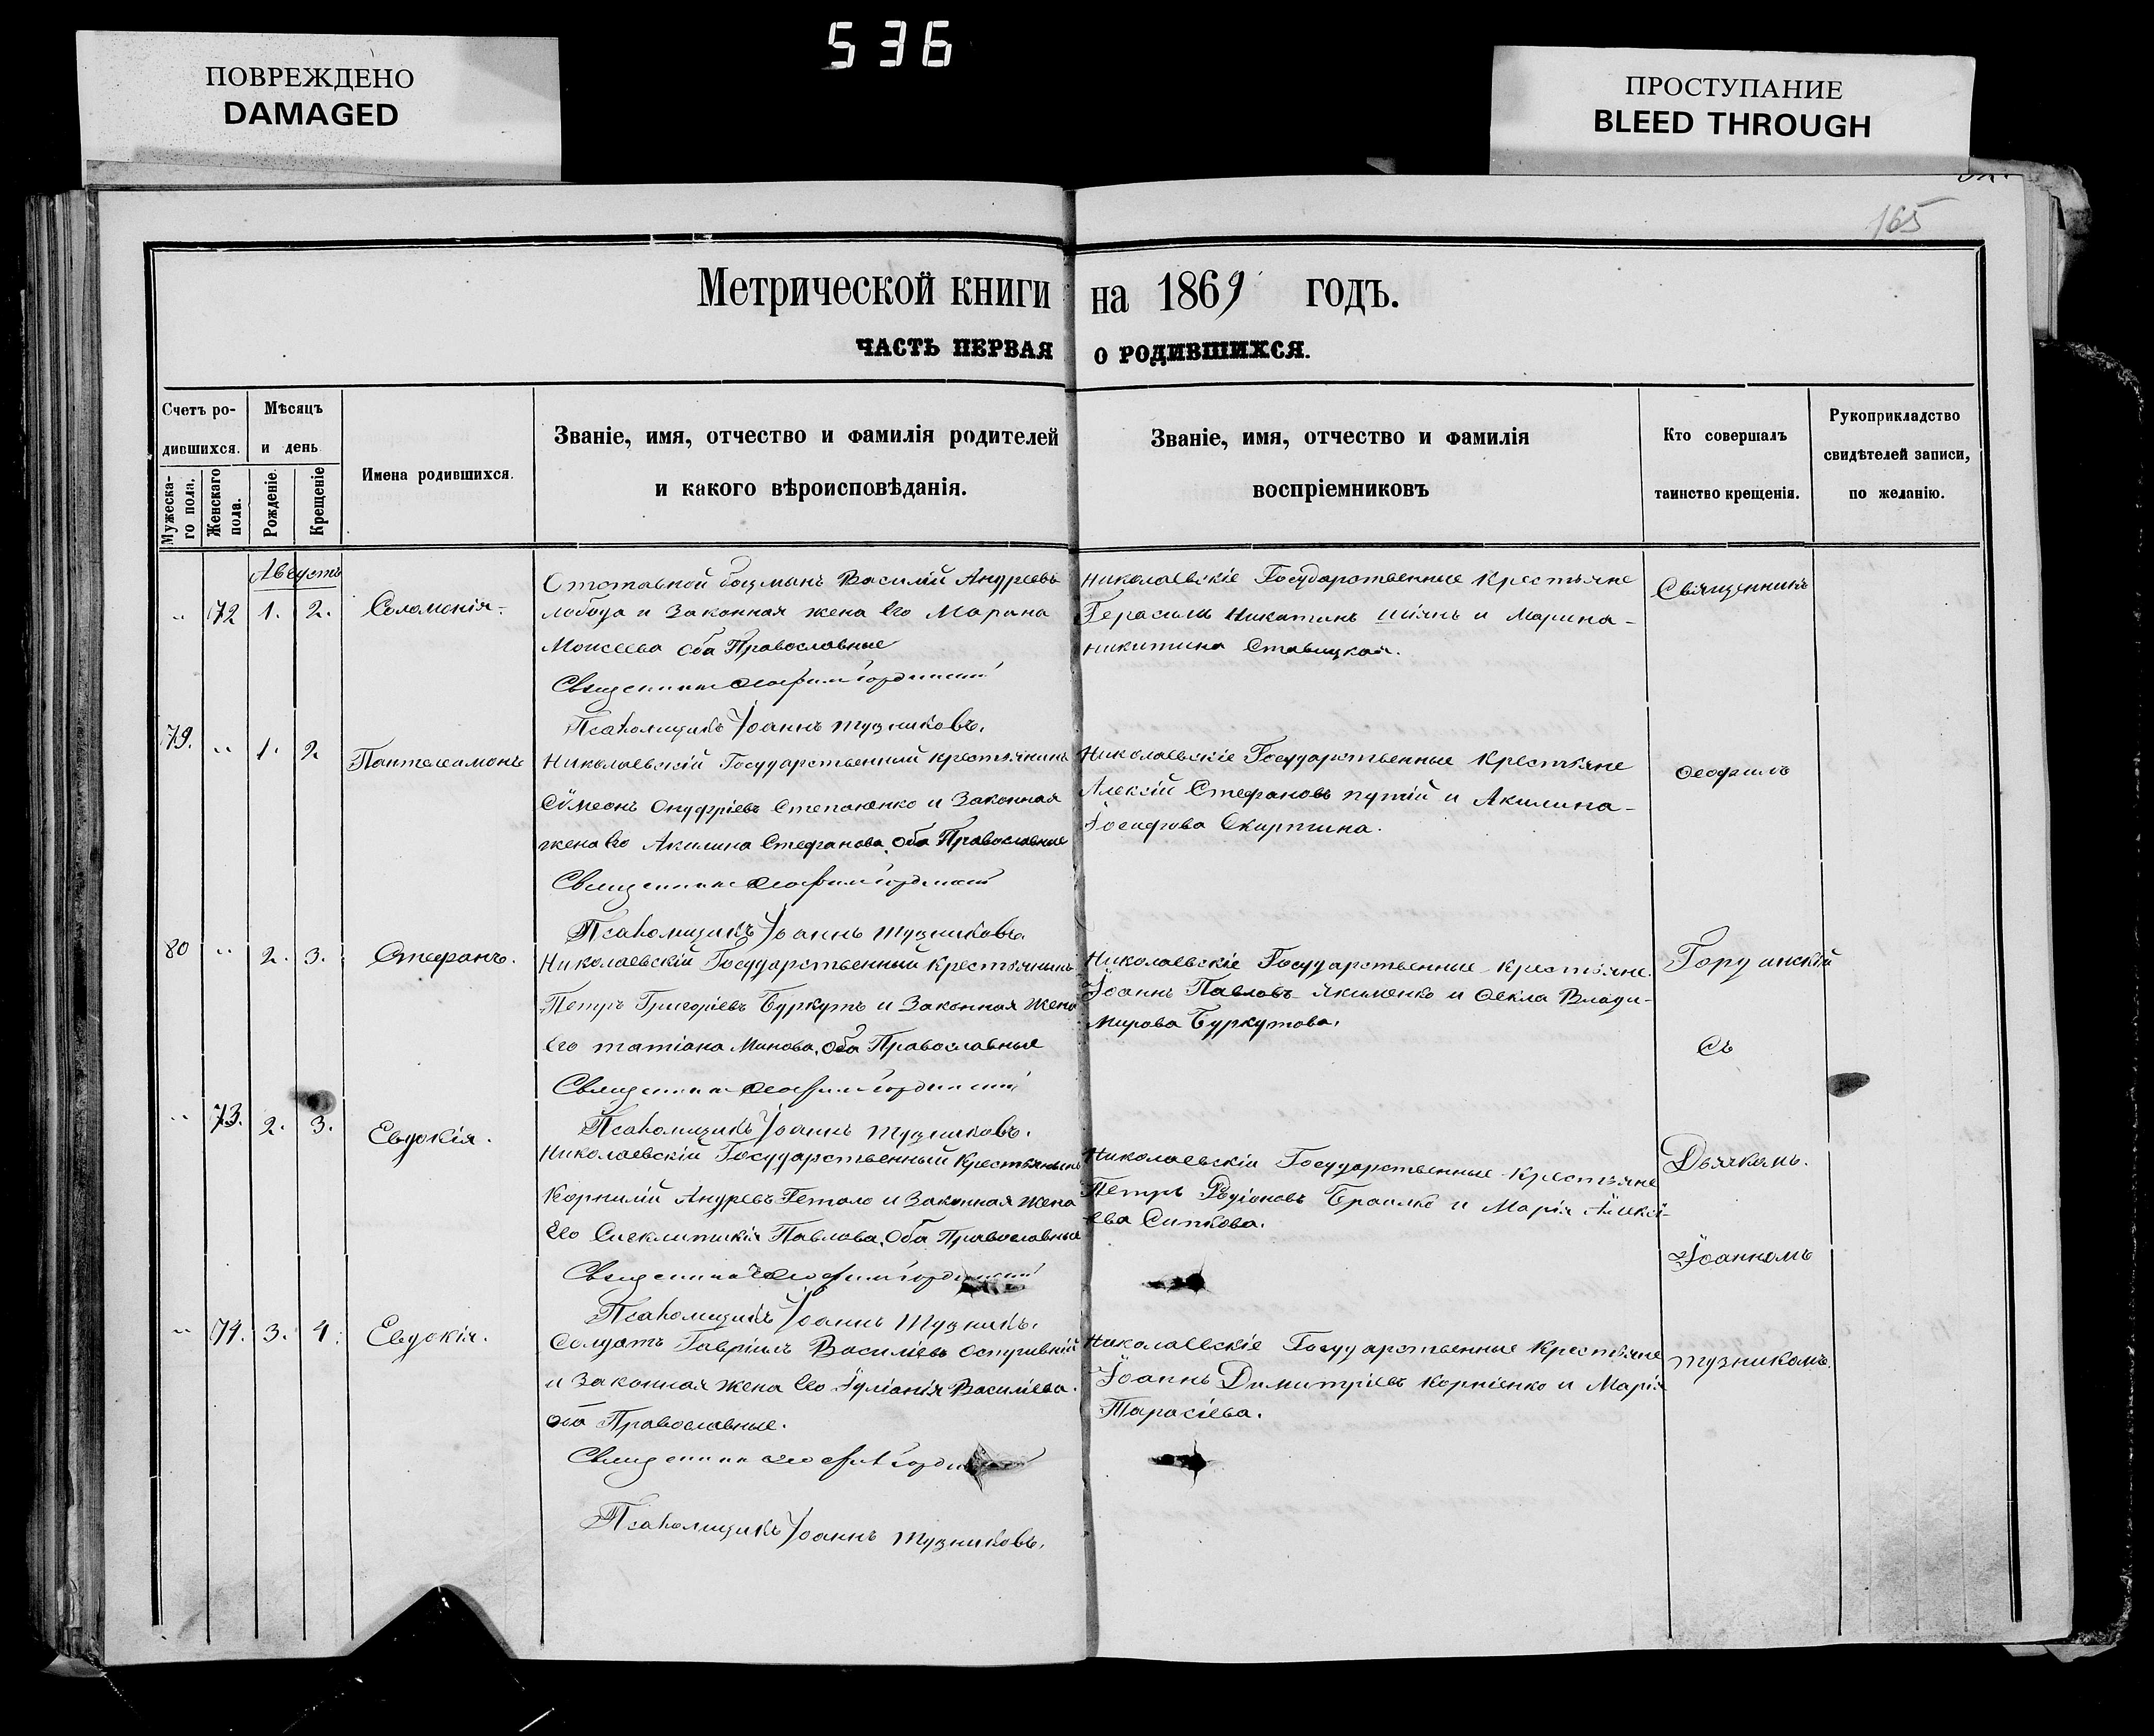 536
ПОВРЕЖДЕНО
DAMAGED
ПРОСТУПАНИЕ
BLEED THROUGH
165
Метрической книги на 1869 годъ.
ЧАСТЬ ПЕРВАЯ О РОДИВШИХСЯ.
Счетъ ро-
дившихся.
Мужеска-
го пола.
Женскаго
пола.
Мѣсяцъ
и день
Рожденіе.
Крещеніе
Имена родившихся.
Званіе, имя, отчество и фамилія родителей
и какого вѣроисповѣданія.
Званіе, имя, отчество и фамилія
воспріемниковъ
Кто совершалъ
таинство крещенія.
Рукоприкладство
свидѣтелей записи,
по желанію.
Августъ
„ 72 1. 2. Соломонія.
Отставной боцманъ Василій Андреевъ
Лобода и Законная жена Его Марина
Моисеева Оба Православные
Священникъ Ѳеофилъ
Псаломщикъ Іоаннъ Тузниковъ.
Николаевскіе Государственные Крестьяне
Герасимъ Никитинъ Шіянъ и Марина
Никитина Ставицкая.
Священникъ
79. „ 1. 2 Пантелеимонъ
Николаевскій Государственный крестьянинъ
Сѷмеонъ Онуфріевъ Степаненко и Законная
жена Его Акилина Стефанова, Оба Православные
Священникъ Ѳеофилъ
Псаломщикъ Іоаннъ Тузниковъ
Николаевскіе Государственные Крестьяне
Алексій Стефановъ Путій и Акилина
Іосифова
Ѳеофилъ
80 „ 2. 3. Стефанъ.
Николаевскій Государственный Крестьянинъ
Петръ Григоріевъ Буркутъ и Законная Жена
Его Татіана Минова, Оба Православные
Священникъ Ѳеофилъ
Псаломщикъ Іоаннъ Тузниковъ.
Николаевскіе Государственные Крестьяне
Іоаннъ Павловъ Якименко и Ѳекла Влади-
мирова Буркутова.
съ
„ 73. 2. 3. Евдокія.
Николаевскій Государственный Крестьянинъ
Корнилій Андреевъ Гетало и Законная Жена
Его Павлова, Оба Православные
Священникъ Ѳеофилъ
Псаломщикъ Іоаннъ
Николаевскіи Государственные Крестьяне
Петръ Родіоновъ и Марія Алексі-
ева
Дьячкомъ.
Іоанномъ
„ 74. 3. 4. Евдокія.
Солдатъ Гавріилъ Василіевъ
и Законная жена Его Іуліанія Василіева.
Оба Православные.
Священникъ
Псаломщикъ Іоаннъ Тузниковъ.
Николаевскіе Государственные Крестьяне
Іоаннъ Димитріевъ Корніенко и Марія
Тарасіева.